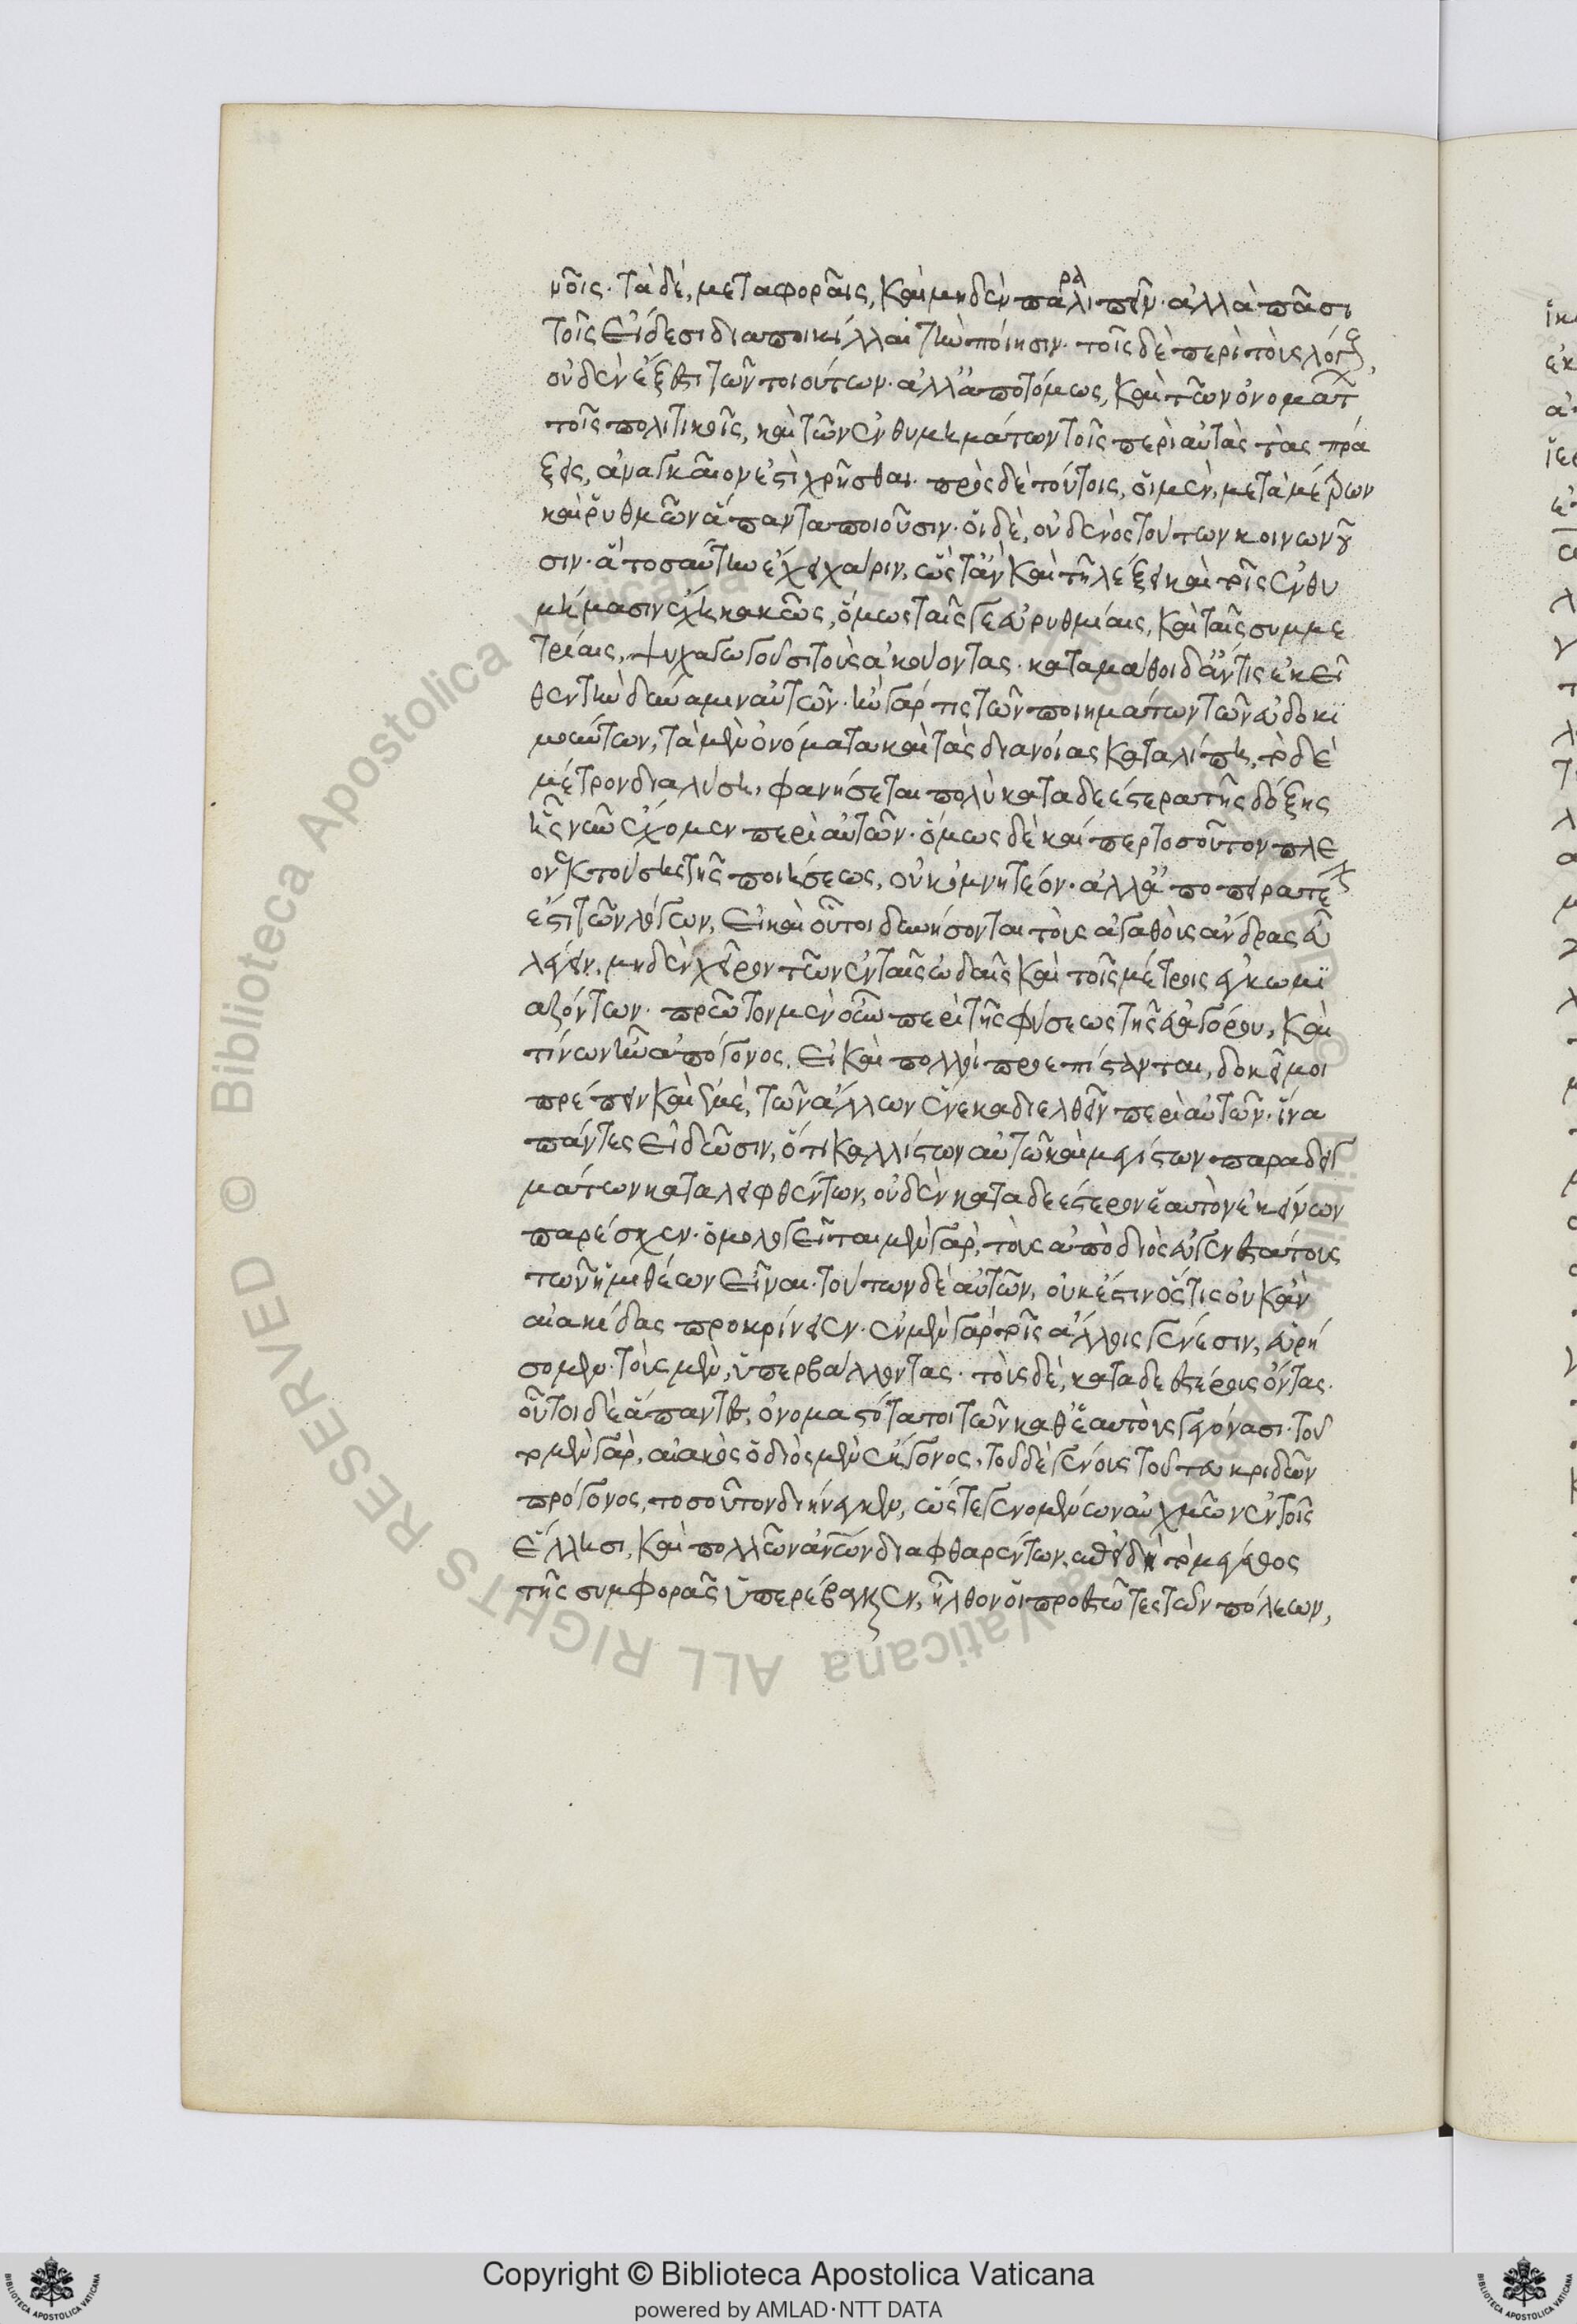 νοῖς· τὰ δὲ, μεταφοραῖς, καὶ μηδὲν παραλιπεῖν· ἀλλὰ πᾶσι
τοῖς εἴδεσι διαποικίλλαι τὴν ποίησιν· τοῖς δὲ περὶ τοὺς λόγους,
οὐδὲν ἔξεστι τῶν τοιούτων· ἀλλ' ἀποτόμως, καὶ τῶν ὀνομάτων
τοῖς πολιτικοῖς, καὶ τῶν ἐνθυμημάτων τοῖς περὶ αὐτὰς τὰς πρά
ξεις, ἀναγκαῖόν ἐστι χρῆσθαι· πρὸς δὲ τούτοις, οἱ μὲν, μετὰ μέτρων
καὶ ῥυθμῶν ἅπαντα ποιοῦσιν· οἱ δὲ, οὐδενὸς τούτων κοινωνοῦ
σιν· ἃ τοσαύτην ἔχει χάριν, ὥστ' ἂν καὶ τῇ λέξει καὶ τοῖς ἐνθυ
μήμασιν ἔχῃ κακῶς, ὅμως ταῖς γε εὐρυθμίαις, καὶ ταῖς συμμε
τρίαις, ψυχαγωγοῦσι τοὺς ἀκούοντας· καταμάθοι δ' ἄν τις ἐκεῖ
θεν τὴν δύναμιν αὐτῶν· ἢν γάρ τις τῶν ποιημάτων τῶν εὐδοκι
μούντων, τὰ μὲν ὀνόματα καὶ τὰς διανοίας καταλίπῃ, τὸ δὲ
μέτρον διαλύσῃ, φανήσεται πολὺ καταδεέστερα τῆς δόξης
ἧς νῦν ἔχομεν περὶ αὐτῶν· ὅμως δὲ καίπερ τοσοῦτον πλε
ονεκτούσης τῆς ποιήσεως, οὐκ ὀκνητέον· ἀλλ' ἀποπειρατέον
ἐστὶ τῶν λόγων, εἰ καὶ οὗτοι δυνήσονται τοὺς ἀγαθοὺς ἄνδρας εὖ
λέγειν, μηδὲν χεῖρον τῶν ἐν ταῖς ᾠδαῖς καὶ τοῖς μέτροις ἐγκωμι
αζόντων· πρῶτον μὲν οὖν περὶ τῆς φύσεως τῆς εὐαγόρου, καὶ
τίνων ἦν ἀπόγονος, εἰ καὶ πολλοὶ προεπίστανται, δοκεῖ μοι
πρέπειν καὶ ἐμὲ, τῶν ἄλλων ἕνεκα διελθεῖν περὶ αὐτῶν· ἵνα
πάντες εἰδῶσιν, ὅτι καλλίστων αὐτῷ καὶ μεγίστων παραδειγ
μάτων καταλειφθέντων, οὐδὲν καταδεέστερον ἑαυτὸν ἐκείνων
παρέσχεν· ὁμολογεῖται μὲν γὰρ, τοὺς ἀπὸ διὸς εὐγενεστάτους
τῶν ἡμιθέων εἶναι· τούτων δὲ αὐτῶν, οὐκ ἔστιν ὅστις οὐκ ἂν
αἰακίδας προκρίνειεν· ἐν μὲν γὰρ τοῖς ἄλλοις γένεσιν, εὑρή
σομεν· τοὺς μὲν, ὑπερβάλλοντας· τοὺς δὲ, καταδεεστέρους ὄντας·
οὗτοι δὲ ἅπαντες, ὀνομαστότατοι τῶν καθ' ἑαυτοὺς γεγόνασι· τοῦ
το μὲν γὰρ, αἰακὸς ὁ διὸς μὲν ἔκγονος, τοῦ δὲ γένους τοῦ τευκριδῶν
πρόγονος, τοσοῦτον διήνεγκεν, ὥστε γενομένων αὐχμῶν ἐν τοῖς
ἕλλησι, καὶ πολλῶν ἀνθρώπων διαφθαρέντων, ἐπειδὴ τὸ μέγεθος
τῆς συμφορᾶς ὑπερέβαλλεν, ἦλθον οἱ προεστῶτες τῶν πόλεων,
Copyright © Biblioteca Apostolica Vaticana
powered by AMLAD·NTT DATA